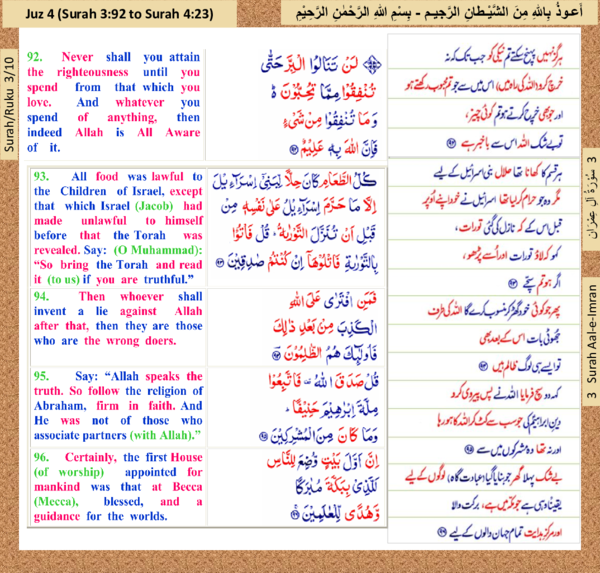 Juz 4 (Surah 3:92 to Surah 4:23)
أعوذُ بِاللهِ مِنَ الشَّيْطانِ الرَّجيمِ - بِسْمِ اللهِ الرَّحْمٰنِ الرَّحِيْمِ
Surah/Ruku 3/10
92. Never shall you attain
the righteousness until you
spend from that which you
love. And whatever you
spend of anything, then
indeed Allah is All Aware
of it.
لَنْ تَنَالُوا الْبِرَّ حَتّٰى
تُنْفِقُوْا مِمَّا تُحِبُّوْنَ ۬ؕ
وَمَا تُنْفِقُوْا مِنْ شَیْءٍ
فَاِنَّ اللّٰهَ بِهٖ عَلِيْمٌ ۹۲
ہرگز نہیں پہنچ سکتے تم نیکی کو جب تک کہ نہ
خرچ کرو (اللہ کی راہ میں) اس میں سے جو تم محبوب رکھتے ہو
اور جو بھی خرچ کرتے ہو تم کوئی چیز،
تو بے شک اللہ اس سے باخبر ہے ۹۲
93. All food was lawful to
the Children of Israel, except
that which Israel (Jacob) had
made unlawful to himself
before that the Torah was
revealed. Say: (O Muhammad):
“So bring the Torah and read
it (to us) if you are truthful.”
كُلُّ الطَّعَامِ كَانَ حِلًّا لِّبَنِیْٓ اِسْرَآءِيْلَ
اِلَّا مَا حَرَّمَ اِسْرَآءِيْلُ عَلٰى نَفْسِهٖ مِنْ
قَبْلِ اَنْ تُنَزَّلَ التَّوْرٰىةُ ؕ قُلْ فَاْتُوْا
بِالتَّوْرٰىةِ فَاتْلُوْهَآ اِنْ كُنْتُمْ صٰدِقِيْنَ ۹۳
ہر قسم کا کھانا تھا حلال بنی اسرائیل کے لیے
مگر وہ جو حرام کر لیا تھا اسرائیل نے خود اپنے اُوپر
قبل اس کے کہ نازل کی گئی تورات،
کہو کہ لاؤ تورات اور اُسے پڑھو،
اگر ہو تم سچے ۹۳
94. Then whoever shall
invent a lie against Allah
after that, then they are those
who are the wrong doers.
فَمَنِ افْتَرٰى عَلَى اللّٰهِ
الْكَذِبَ مِنْ بَعْدِ ذٰلِكَ
فَاُولٰٓئِكَ هُمُ الظّٰلِمُوْنَ ۹۴
پھر جو کوئی خود گھڑ کر منسوب کرے گا اللہ کی طرف
جھوٹی بات اس کے بعد بھی
تو ایسے ہی لوگ ظالم ہیں ۹۴
95. Say: “Allah speaks the
truth. So follow the religion of
Abraham, firm in faith. And
He was not of those who
associate partners (with Allah).”
قُلْ صَدَقَ اللّٰهُ ۫ فَاتَّبِعُوْا
مِلَّةَ اِبْرٰهِيْمَ حَنِيْفًا ؕ
وَمَا كَانَ مِنَ الْمُشْرِكِيْنَ ۹۵
کہہ دو سچ فرمایا اللہ نے پس پیروی کرو
دینِ ابراہیمؑ کی جو سب سے کٹ کر اللہ کا ہو رہا
اور نہ تھا وہ مشرکوں میں سے ۹۵
96. Certainly, the first House
(of worship) appointed for
mankind was that at Becca
(Mecca), blessed, and a
guidance for the worlds.
اِنَّ اَوَّلَ بَيْتٍ وُّضِعَ لِلنَّاسِ
لَلَّذِیْ بِبَكَّةَ مُبٰرَكًا
وَّهُدًى لِّلْعٰلَمِيْنَ ۹۶
بے شک پہلا گھر جو بنایا گیا (عبادت گاہ) لوگوں کے لیے
یقیناً وہی ہے جو مکہ میں ہے، برکت والا
اور مرکزِ ہدایت تمام جہان والوں کے لیے ۹۶
3 سُوۡرَةُ اٰلِ عِمْرَان
3 Surah Aal-e-Imran